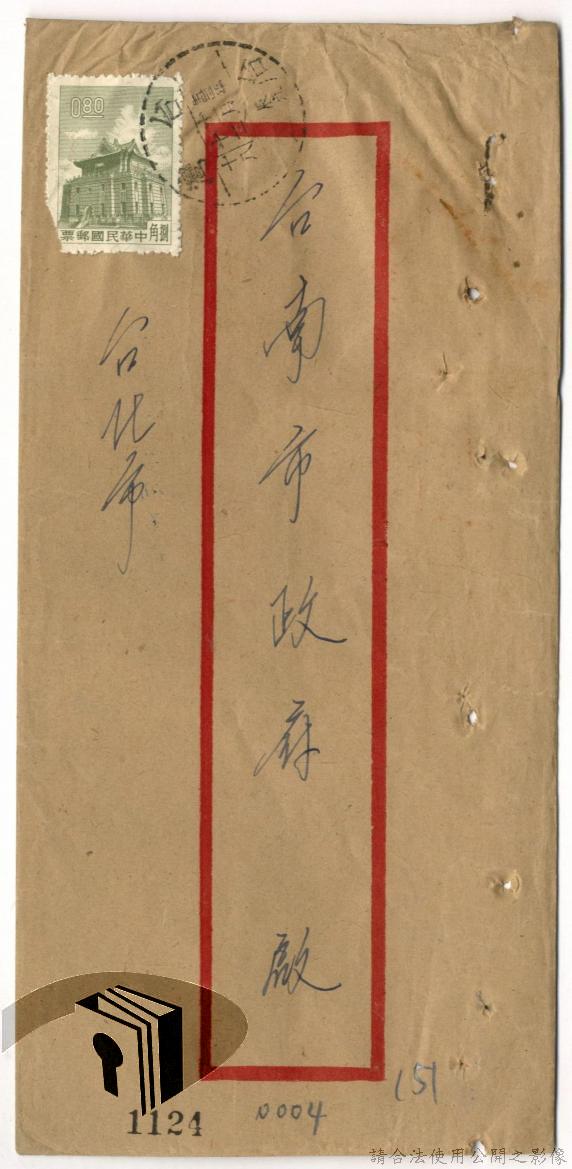 0.80
票郵國民華中
角捌
台南市政府 啟
台北市
1124
0004
151
請合法使用公開之影像